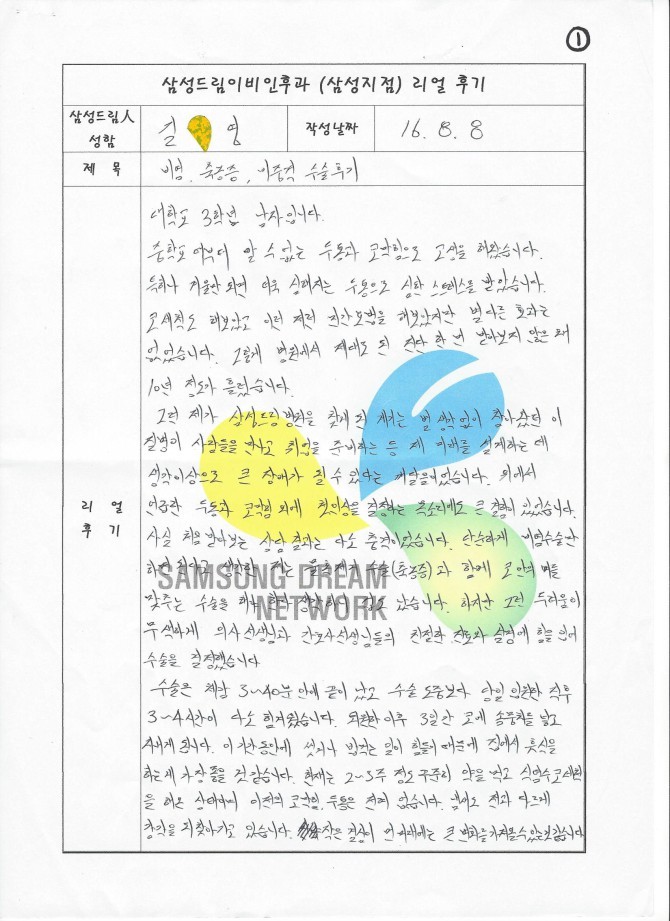 ①
삼성드림이비인후과 (삼성지점) 리얼 후기
삼성드림人 성함
김 영
작성날짜
16. 8. 8
제 목
비염, 축농증, 비중격 수술후기
리 얼 후 기
대학교 3학년 남자입니다.
중학교 때부터 알 수 없는 두통과 코막힘으로 고생을 해왔습니다.
특히나 겨울만 되면 더욱 심해지는 두통으로 심한 스트레스를 받았습니다.
코세척도 해보았고 이런 저런 민간요법을 해보았지만 별다른 효과는
없었습니다. 그렇게 병원에서 제대로 된 진단 한 번 받아보지 않은 채
10년 정도가 흘렀습니다.
그런 제가 삼성드림병원을 찾게 된 계기는 별 생각없이 참아왔던 이
질병이 사람들을 만나고 취업을 준비하는 등 제 미래를 설계하는 데
생각이상으로 큰 장애가 될 수 있다는 깨달음이었습니다. 위에서
언급한 두통과 코막힘 외에 첫인상을 결정하는 목소리에도 큰 결함이 있었습니다.
사실 처음 받아보는 상담 결과는 다소 충격이었습니다. 단순하게 비염수술만
하면 된다고 생각한 저는 물혹제거 수술(축농증)과 함께 코안의 뼈를
맞추는 수술을 해야 한다 생각하니 겁도 났습니다. 하지만 그런 두려움이
무색하게 의사선생님과 간호사선생님들의 친절한 진료와 설명에 힘을 얻어
수술을 결정했습니다
수술은 체감 3~40분 안에 끝이 났고 수술 도중보다 당일 입원한 직후
3~4시간이 다소 힘겨웠습니다. 퇴원한 이후 3일간 코에 솜뭉치를 넣고
살게 됩니다. 이 기간동안에 씻거나 밖가는 일이 힘들기 때문에 집에서 휴식을
하는게 가장 좋을 것 같습니다. 현재는 2~3주 정도 꾸준히 약을 먹고 식염수 코세척
을 해온 상태이며 이전의 코막힘, 두통은 전혀 없습니다. 냄새도 전과 다르게
감각을 되찾아가고 있습니다. 작은 결심이 먼 미래에는 큰 변화를 가져올 수 있는 것 같습니다
SAMSUNG DREAM
NETWORK